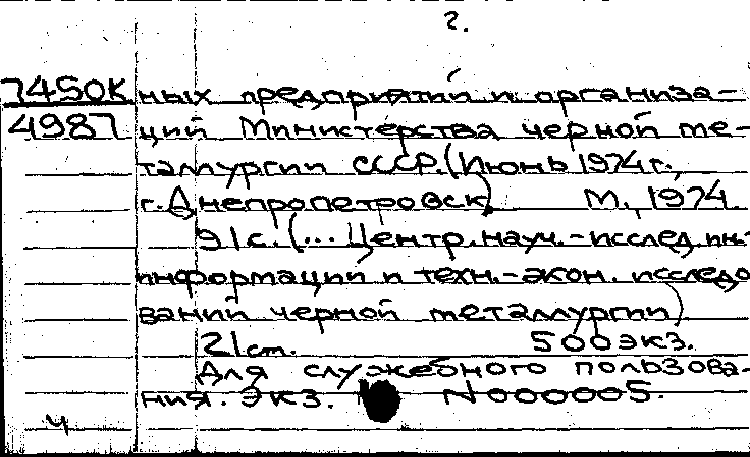 2.
7450к ных предприятий и организа-
4987 ций Министерства черной ме-
таллургии СССР. (Июнь 1974 г.,
г. Днепропетровск) М., 1974
91с. (... Центр. науч.-исслед. ин-т
информации и техн.-экон. исследо
ваний черной металлургии)
21ст. 500экз.
Для служебного пользова-
ния. Экз. N000005.
4